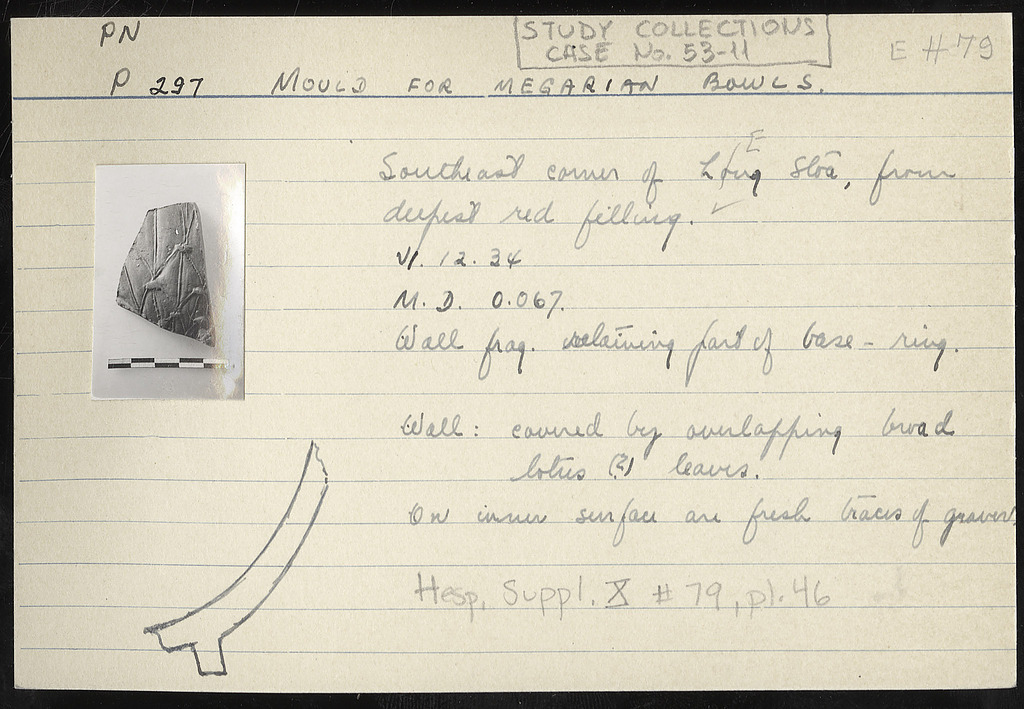 PN
STUDY COLLECTIONS
CASE No. 53-11
E #79
P 297 MOULD FOR MEGARIAN BOWLS.
E
Southeast corner of Long Stoa, from
deepest red filling. ✓
VI. 12. 34
M. D. 0.067.
Wall frag. retaining part of base-ring.
Wall: covered by overlapping broad
lotus (?) leaves.
On inner surface are fresh traces of graver.
Hesp. Suppl. X #79, pl. 46